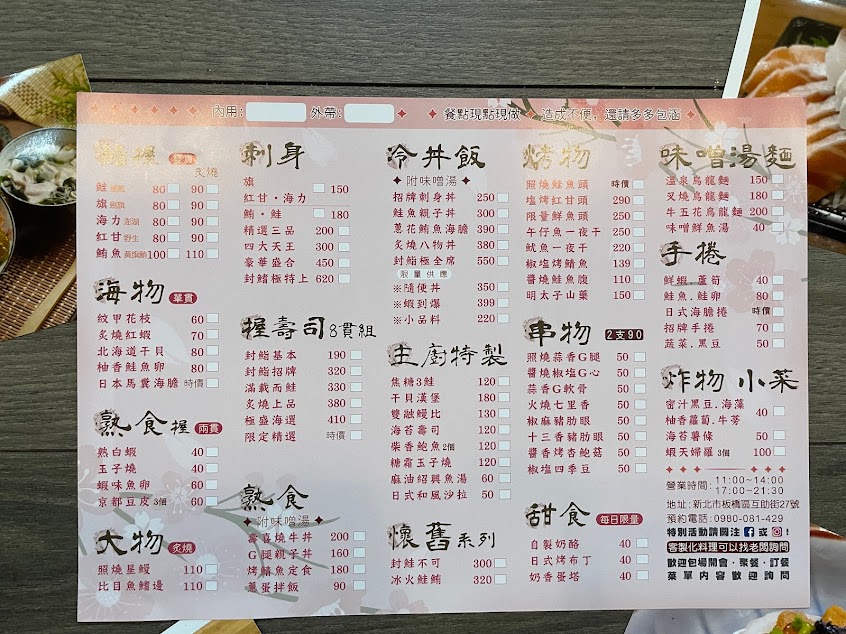 內用: 外帶: 餐點現點現做 造成不便，還請多多包涵
握 雙貫
炙燒
鮭 80 90
旗 劍旗 80 90
海力 澎湖 80 90
紅甘 野生 80 90
鮪魚 黃旗鮪 100 110
海物 單貫
紋甲花枝 60
炙燒紅蝦 70
北海道干貝 80
柚香鮭魚卵 80
日本馬糞海膽 時價
熟食握 兩貫
熟白蝦 40
玉子燒 40
蝦味魚卵 60
京都豆皮 3個 60
大物 炙燒
照燒星鰻 110
比目魚鰭邊 110
刺身
旗
紅甘·海力 150
鮪·鮭 180
精選三品 200
四大天王 300
豪華盛合 450
封鰭極特上 620
握壽司 8貫組
封鮨基本 190
封鮨招牌 320
滿載而鮭 330
炙燒上品 380
極盛海選 410
限定精選 時價
熟食
附味噌湯
壽喜燒牛丼 200
G腿親子丼 160
烤鯖魚定食 180
蔥蛋拌飯 90
冷丼飯
附味噌湯
招牌刺身丼 250
鮭魚親子丼 300
蔥花鮪魚海膽 390
炙燒八物丼 380
封鮨極全席 550
限量供應
※隨便丼 350
※蝦到爆 399
※小品料 220
主廚特製
焦糖3鮭 120
干貝漢堡 180
雙融鰻比 130
海苔壽司 120
柴香鮑魚 2個 120
糖霜玉子燒 120
麻油紹興魚湯 60
日式和風沙拉 50
懷舊系列
封鮭不可 300
冰火鮭鮪 320
烤物
照燒鮭魚頭 時價
塩烤紅甘頭 290
限量鮮魚頭 200
午仔魚一夜干 250
魷魚一夜干 220
椒塩烤鯖魚 139
醬燒鮭魚腹 110
明太子山藥 150
串物 2支90
照燒蒜香G腿 50
醬燒椒塩G心 50
蒜香G軟骨 50
火燒七里香 50
椒麻豬肋眼 50
十三香豬肋眼 50
醬香烤杏鮑菇 50
椒塩四季豆 50
甜食 每日限量
自製奶酪 40
日式烤布丁 40
奶香蛋塔 40
味噌湯麵
溫泉烏龍麵 150
叉燒烏龍麵 180
牛五花烏龍麵 200
味噌鮮魚湯 40
手捲
鮮蝦.蘆筍 40
鮭魚.鮭卵 80
日式海膽捲 時價
招牌手捲 70
蔬菜.黑豆 50
炸物 小菜
蜜汁黑豆.海藻 40
柚香蘿蔔.牛蒡
海苔薯條 50
蝦天婦羅 3個 100
營業時間: 11:00~14:00
17:00~21:30
地址:新北市板橋區互助街27號
預約電話:0980-081-429
特別活動請關注 f 或 !
客製化料理可以找老闆詢問
歡迎包場開會、聚餐、訂餐
菜單內容歡迎詢問